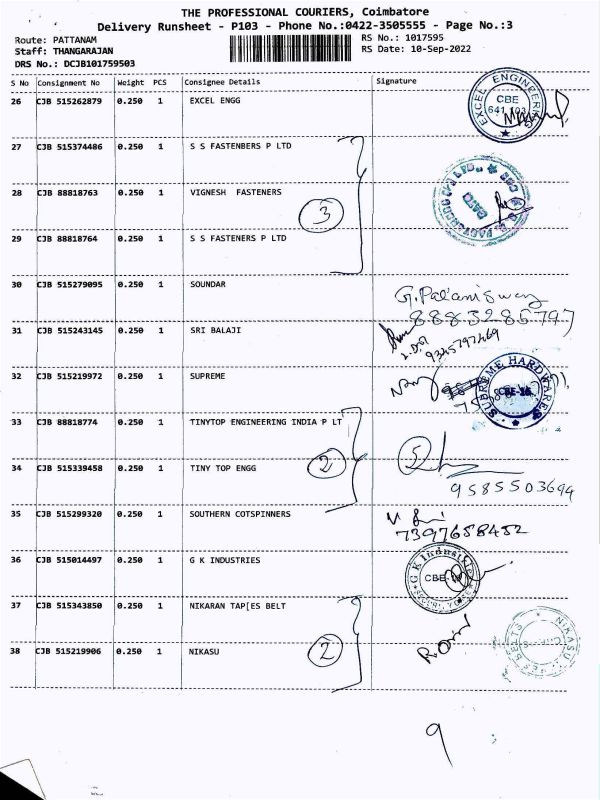 THE PROFESSIONAL COURIERS, Coimbatore
Delivery Runsheet - P103 - Phone No.:0422-3505555 - Page No.:3
Route: PATTANAM RS No.: 1017595
Staff: THANGARAJAN RS Date: 10-Sep-2022
DRS No.: DCJB101759503
S No Consignment No Weight PCS Consignee Details Signature
26 CJB 515262879 0.250 1 EXCEL ENGG
EXCEL ENGINEERS
CBE
641 103
27 CJB 515374486 0.250 1 S S FASTENBERS P LTD
28 CJB 88818763 0.250 1 VIGNESH FASTENERS
3
29 CJB 88818764 0.250 1 S S FASTENERS P LTD
30 CJB 515279095 0.250 1 SOUNDAR
G. Palaniswamy
8883285797
31 CJB 515243145 0.250 1 SRI BALAJI
9345797469
32 CJB 515219972 0.250 1 SUPREME
SUPREME HARDWARES
CBE-16
33 CJB 88818774 0.250 1 TINYTOP ENGINEERING INDIA P LT
34 CJB 515339458 0.250 1 TINY TOP ENGG
2
9585503694
35 CJB 515299320 0.250 1 SOUTHERN COTSPINNERS
7397658452
36 CJB 515014497 0.250 1 G K INDUSTRIES
G K Industries
CBE
37 CJB 515343850 0.250 1 NIKARAN TAP[ES BELT
38 CJB 515219906 0.250 1 NIKASU
2
NIKASU
BELTS
9